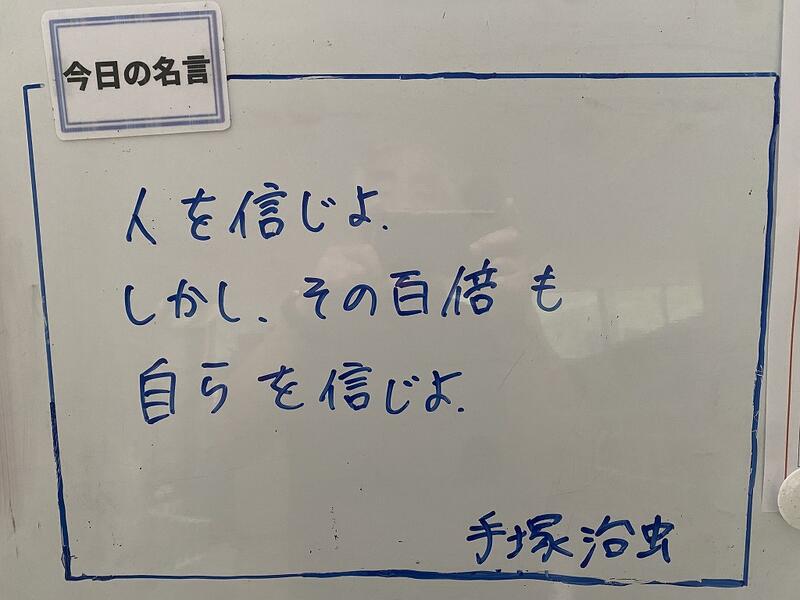 今日の名言
人を信じよ.
しかし、その百倍も
自らを信じよ.
手塚治虫